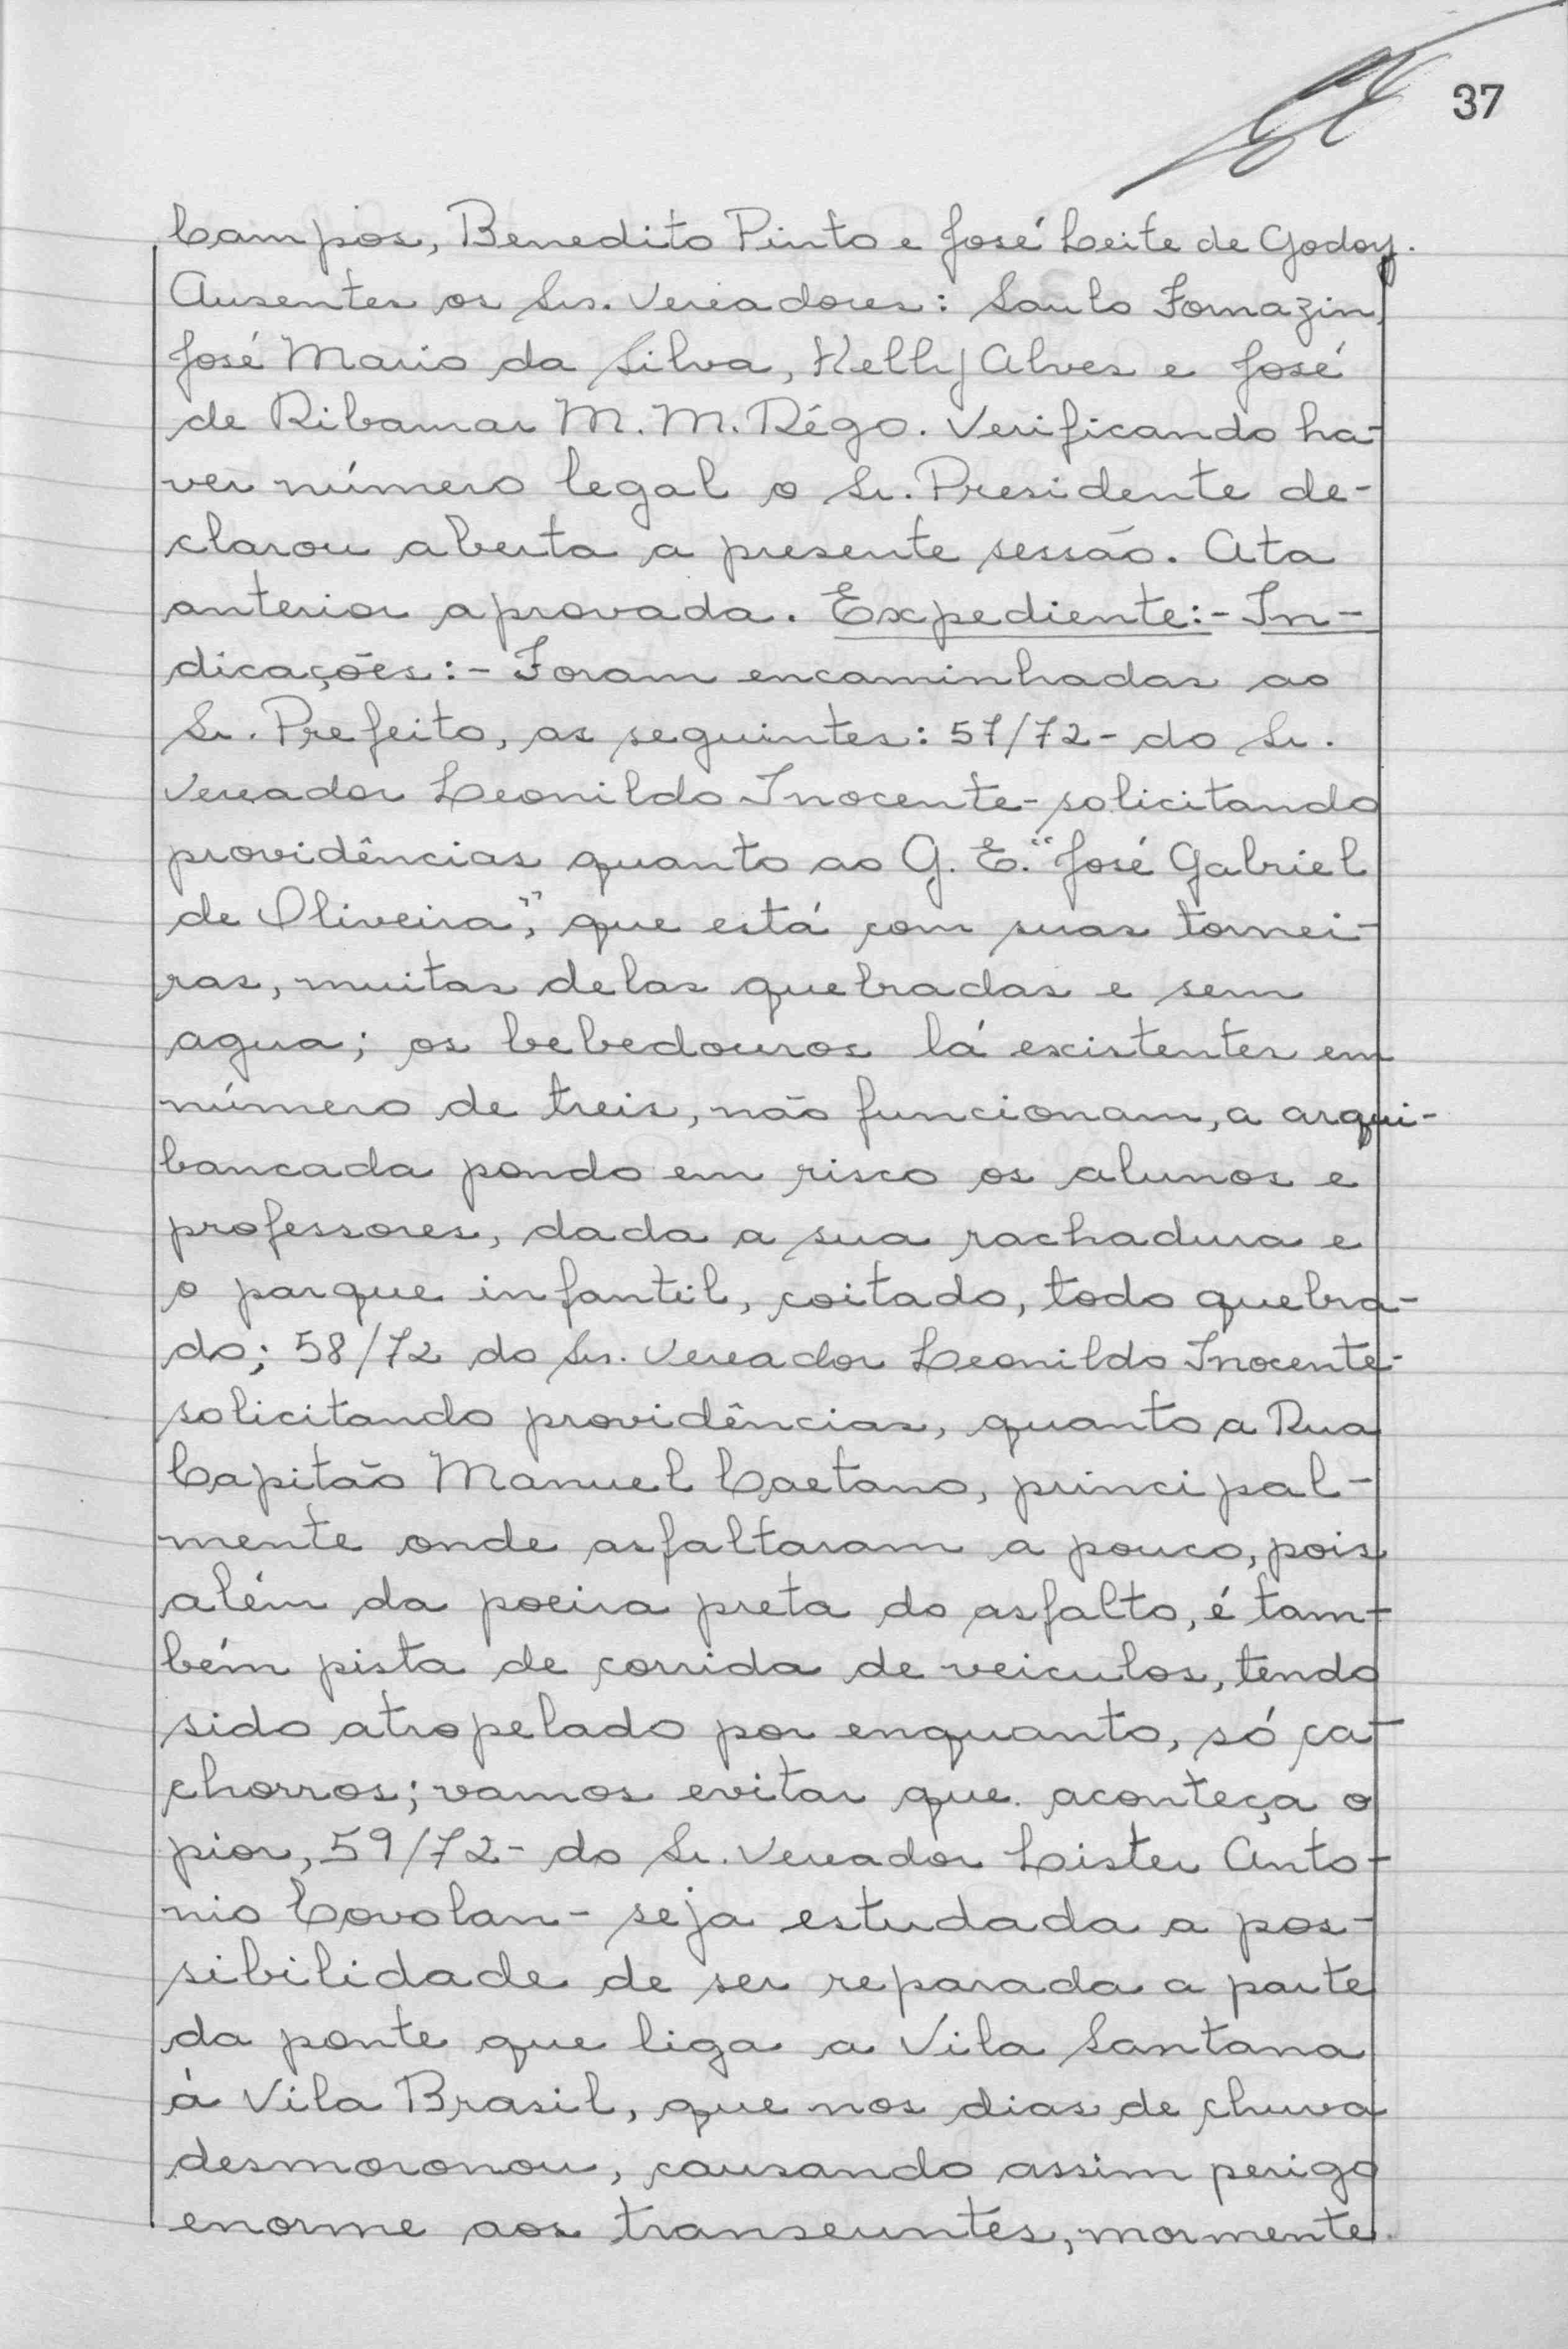 37
Campos, Benedito Pinto e José Leite de Godoy.
Ausentes os Srs. Vereadores: Saulo Fornazin,
José Mario da Silva, Kelly Alves e José
de Ribamar M. M. Rêgo. Verificando ha-
ver número legal o Sr. Presidente de-
clarou aberta a presente sessão. Ata
anterior aprovada. Expediente:- In-
dicações:- Foram encaminhadas ao
Sr. Prefeito, as seguintes: 57/72- do Sr.
Vereador Leonildo Inocente- solicitando
providências quanto ao G. E. "José Gabriel
de Oliveira", que está com suas tornei-
ras, muitas delas quebradas e sem
agua; os bebedouros lá existentes em
número de treis, não funcionam, a arqui-
bancada pondo em risco os alunos e
professores, dada a sua rachadura e
o parque infantil, coitado, todo quebra-
do; 58/72 do Sr. Vereador Leonildo Inocente-
solicitando providências, quanto a Rua
Capitão Manuel Caetano, principal-
mente onde asfaltaram a pouco, pois
além da poeira preta do asfalto, é tam-
bém pista de corrida de veiculos, tendo
sido atropelado por enquanto, só ca-
chorros; vamos evitar que aconteça o
pior, 59/72- do Sr. Vereador Lister Anto-
nio Covolan- seja estudada a pos-
sibilidade de ser reparada a parte
da ponte que liga a Vila Santana
à Vila Brasil, que nos dias de chuva
desmoronou, causando assim perigo
enorme aos transeuntes, mormente